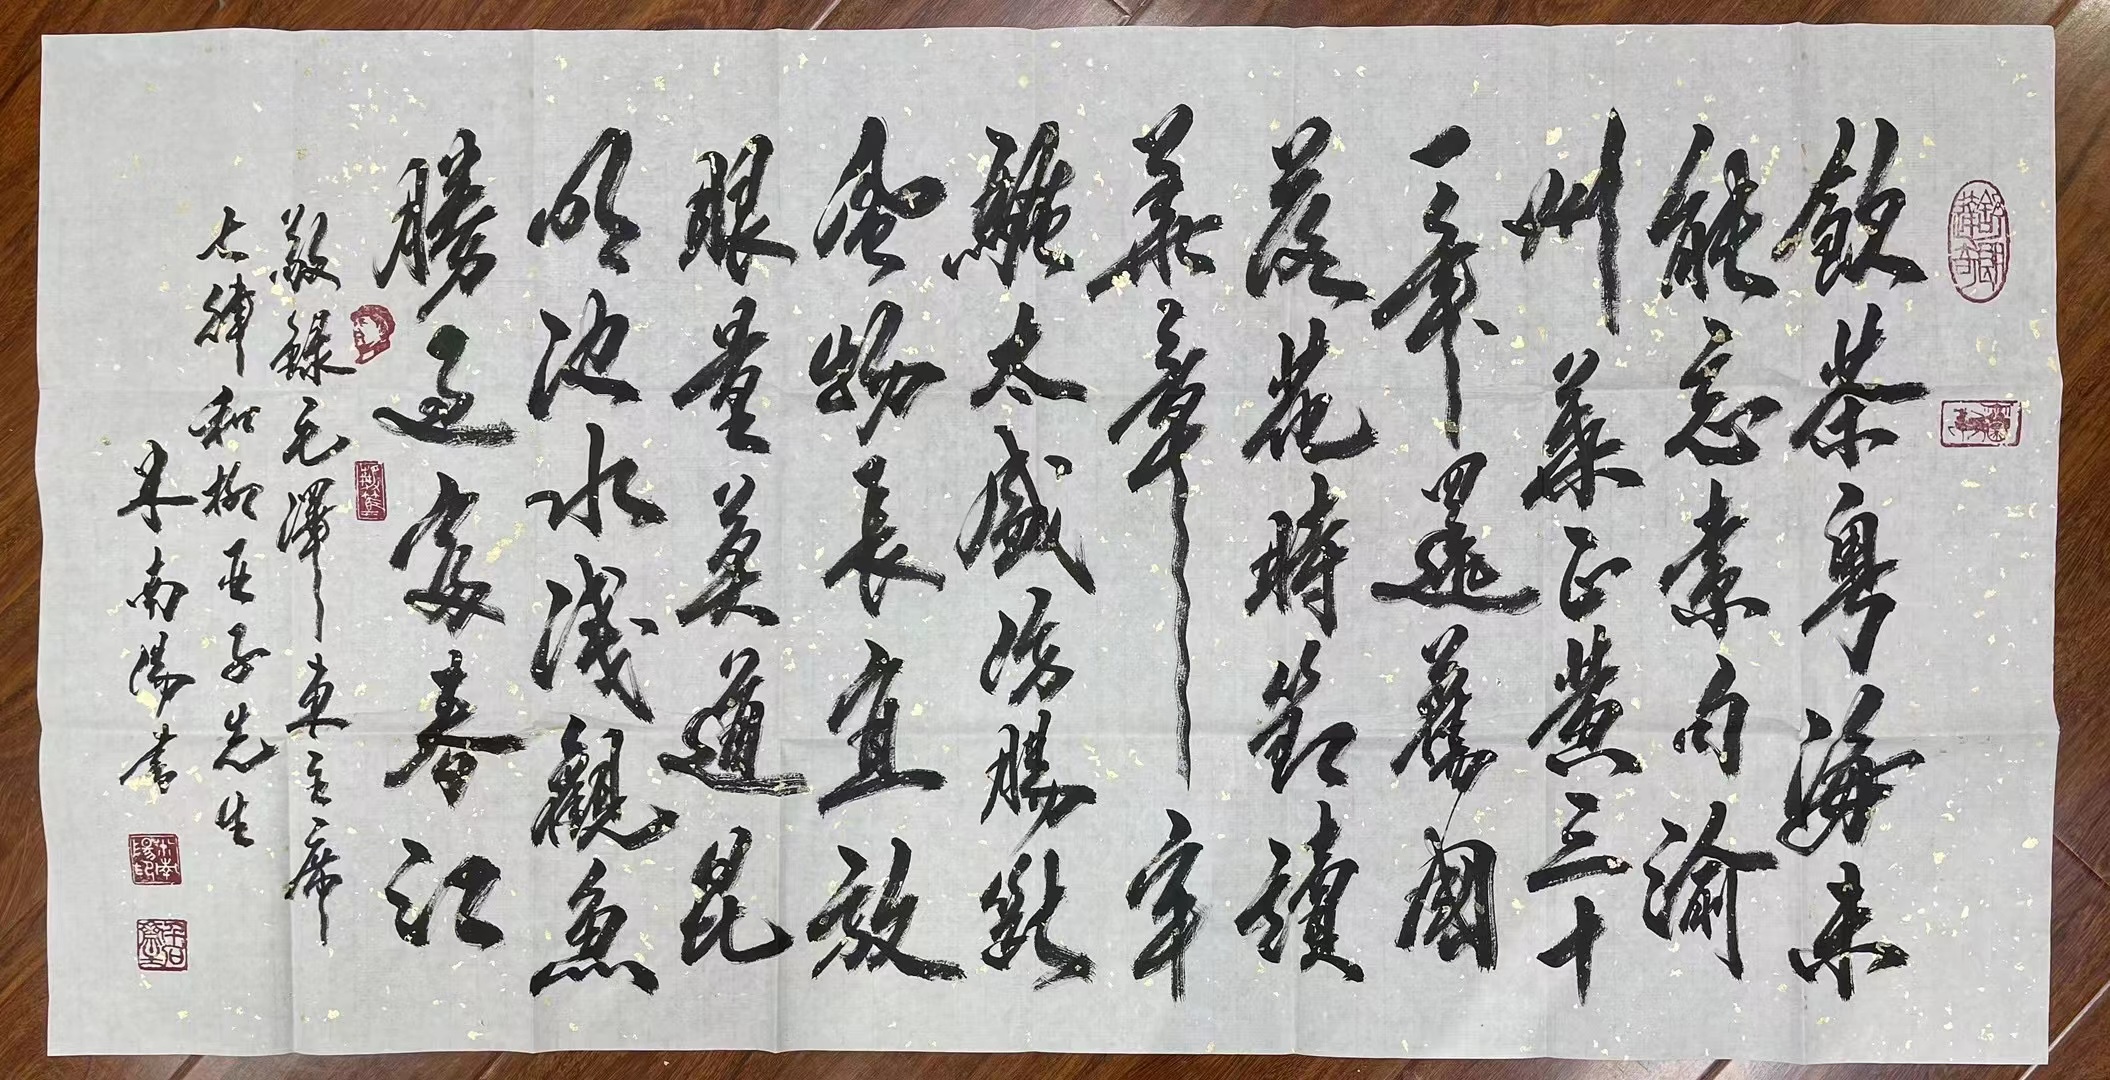 飲茶粤海未
能忘索句渝
州葉正黄三十
一年還舊國
落花時節讀
華章牢
騷太盛防腸斷
風物長宜放
眼量莫道昆
明池水淺觀魚
勝過富春江
敬錄毛澤東主席
七律和柳亞子先生
米南陽書
米南陽印